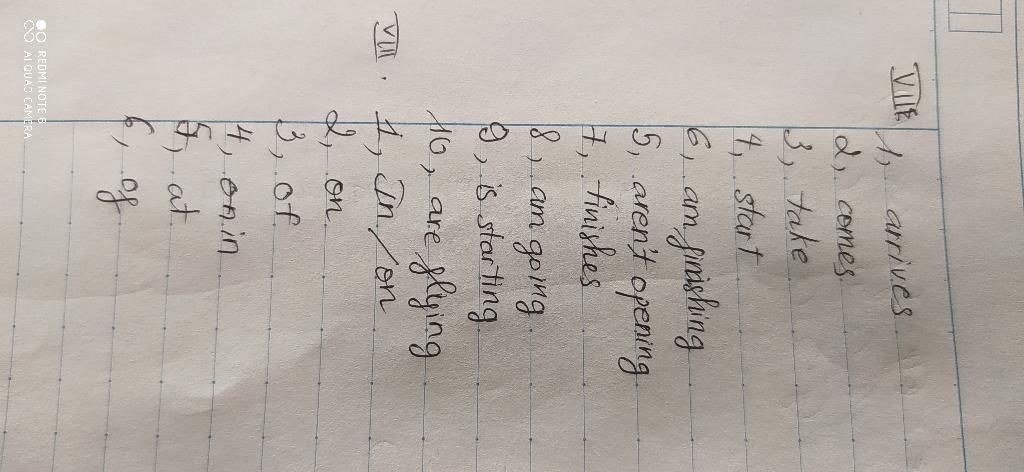 VIIE
1, arrives
2, comes
3, take
4, start
6, am finishing
5, aren't opening
7, finishes
8, am going
9, is starting
10, are flying
VIII.
1, In/on
2, on
3, of
4, on, in
5, at
6, of
REDMI NOTE 8
AI QUAD CAMERA